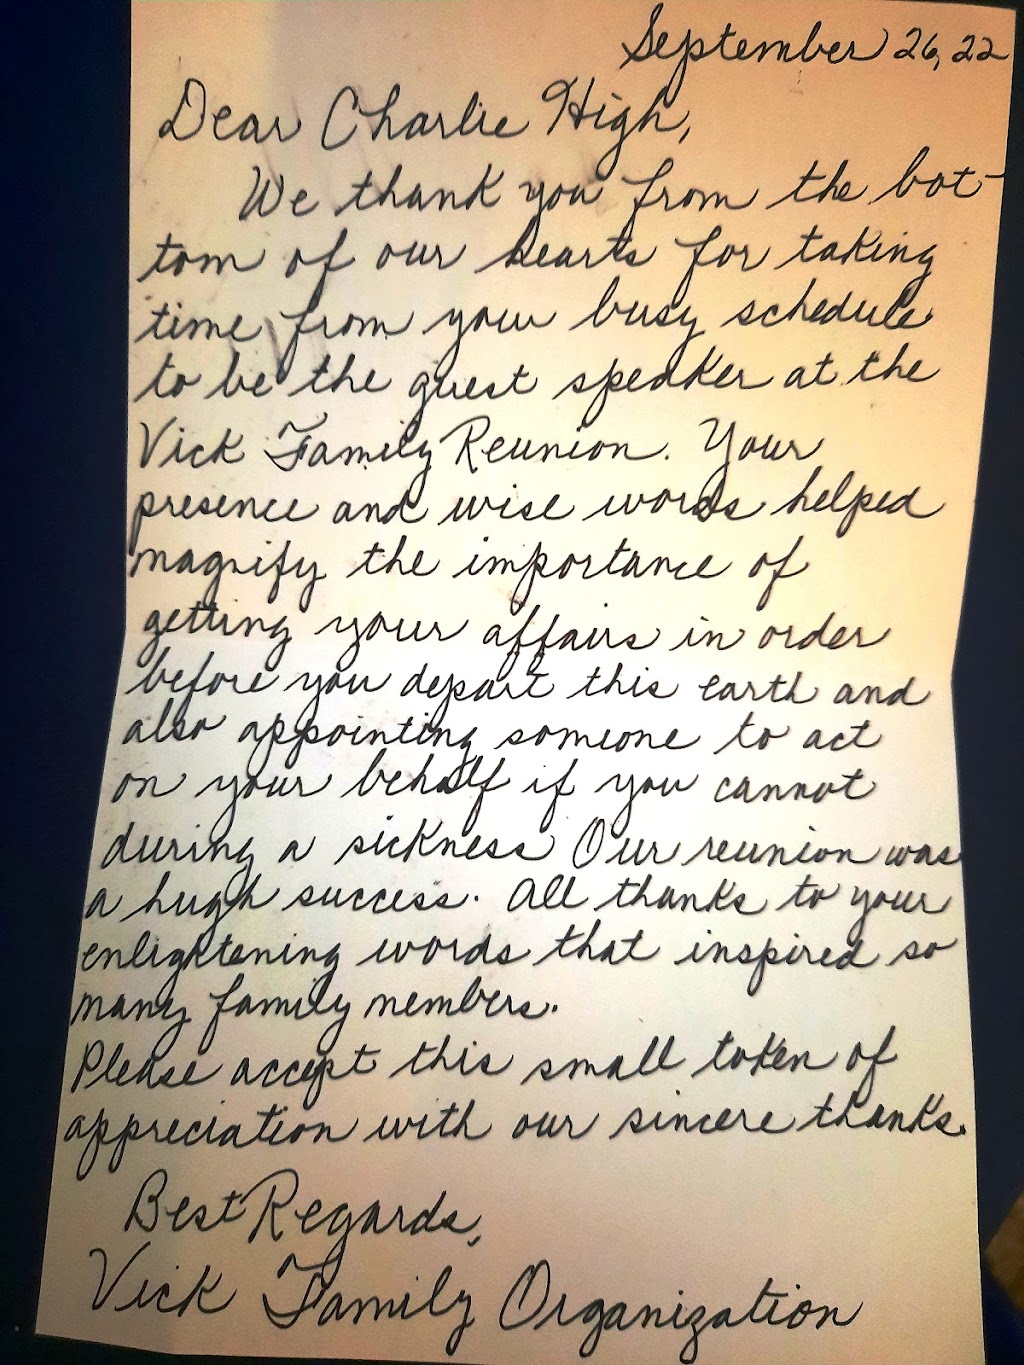 September 26, 22
Dear Charlie High,
We thank you from the bot-
tom of our hearts for taking
time from your busy schedule
to be the guest speaker at the
Vick Family Reunion. Your
presence and wise words helped
magnify the importance of
getting your affairs in order
before you depart this earth and
also appointing someone to act
on your behalf if you cannot
during a sickness Our reunion was
a hugh success. All thanks to your
enlightening words that inspired so
many family members.
Please accept this small token of
appreciation with our sincere thanks.
Best Regards,
Vick Family Organization